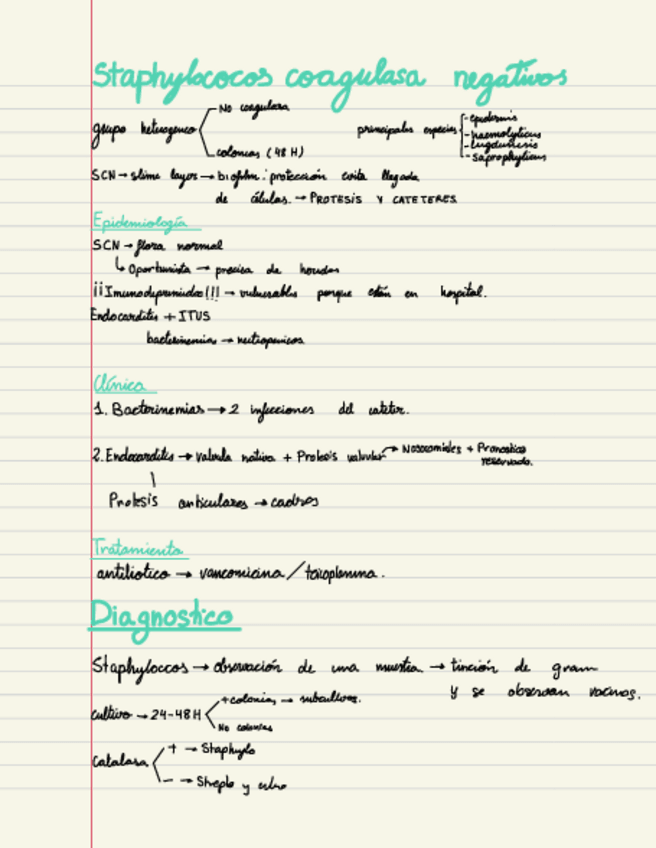 Staphylococos coagulasa negativos
grupo heterogeneo
No coagulasa
colonias (48 H)
principales especies
- epidermis
- haemolyticus
- lugdunensis
- saprophyticus
SCN → slime layer → biofilm: protección evita llegada
de células. → PROTESIS Y CATETERES
Epidemiología
SCN → flora normal
↳ Oportunista → precisa de heridas
¡¡Inmunodeprimidos!!! → vulnerables porque están en hospital.
Endocarditis + ITUS
bacteriemias → neutropenicos
Clínica
1. Bacteriemias → 2 infecciones del cateter.
2. Endocarditis → valvula nativa + Protesis valvular → Nosocomiales + Pronostico
reservado.
Protesis articulares →
Tratamiento
antibiotico → vancomicina /
Diagnostico
Staphyloccos → observación de una muestra → tinción de gram
y se observan racimos.
cultivo → 24-48H
+ colonias → subcultivos.
No colonias
Catalasa
+ → Staphylo
- → Strepto y